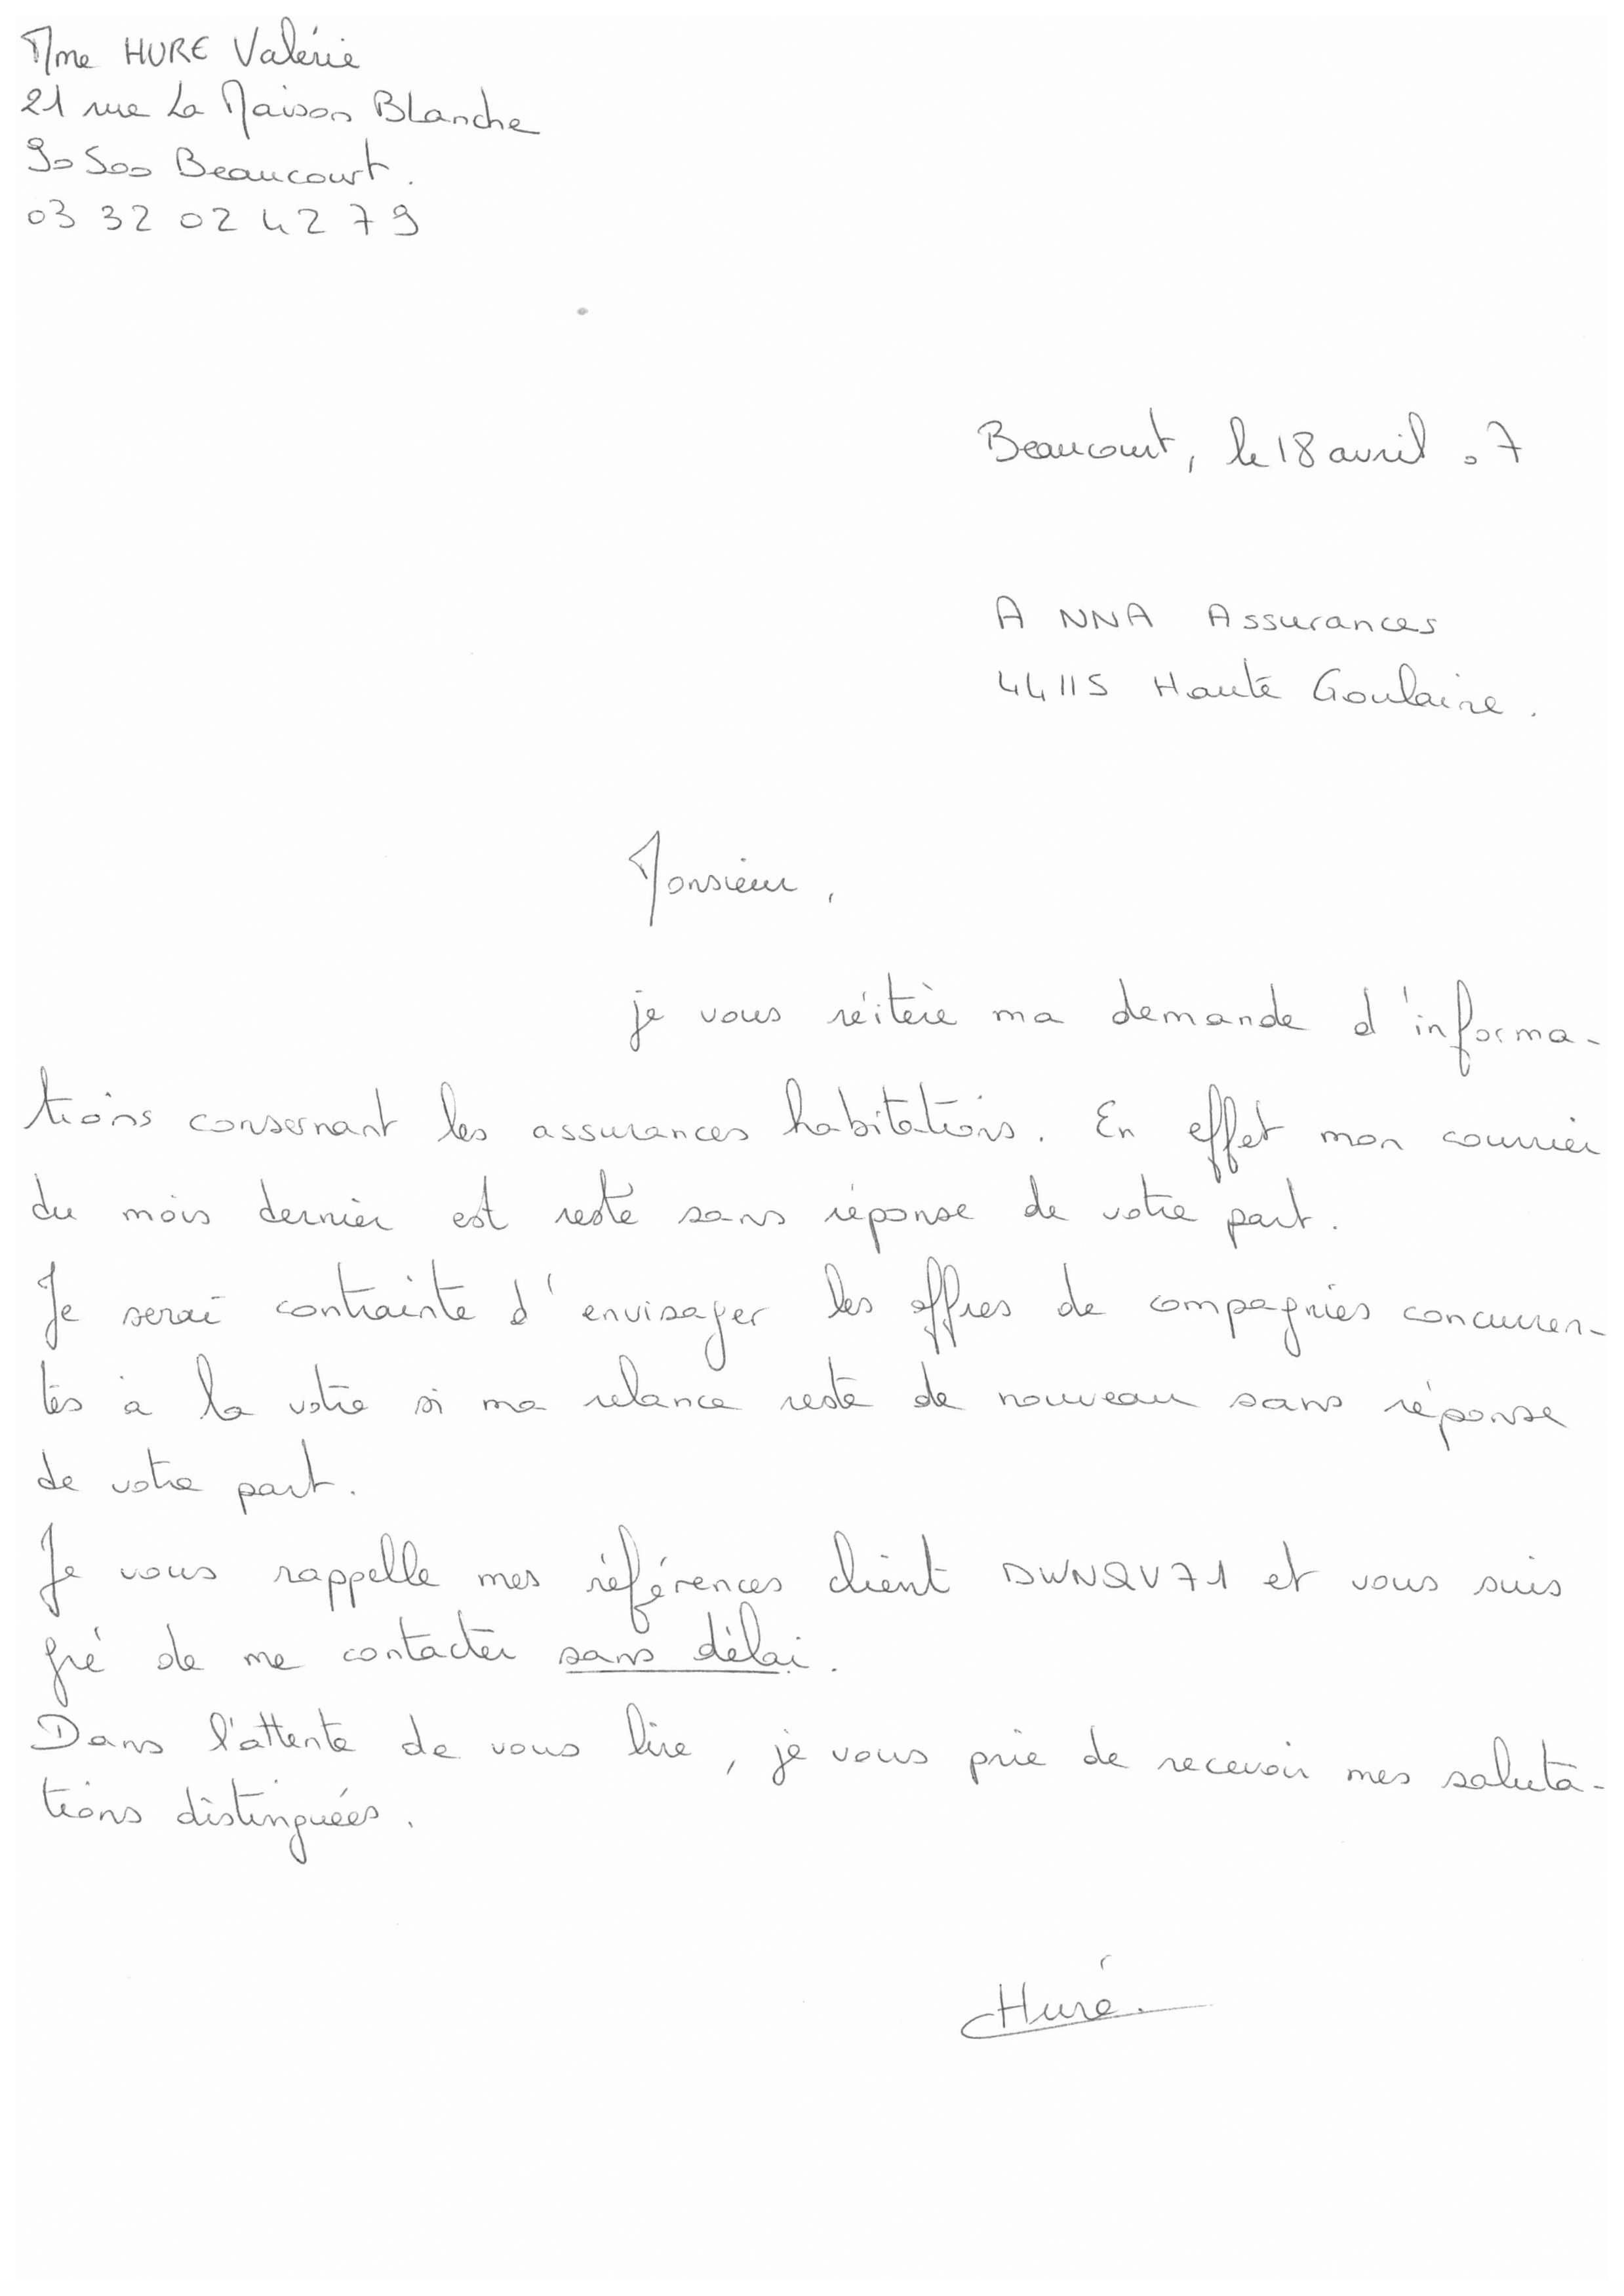 Mme HURE Valérie
21 rue La Maison Blanche
90500 Beaucourt.
03 32 02 42 79
Beaucourt, le 18 avril 07
A NNA Assurances
44115 Haute Goulaine.
Monsieur,
je vous réitère ma demande d'informa-
tions consernant les assurances habitations. En effet mon courrier
du mois dernier est resté sans réponse de votre part.
Je serai contrainte d'envisager les offres de compagnies concurren-
tes à la votre si ma relance reste de nouveau sans réponse
de votre part.
Je vous rappelle mes références client DWNQV71 et vous suis
gré de me contacter sans délai.
Dans l'attente de vous lire, je vous prie de recevoir mes saluta-
tions distinguées.
Huré.